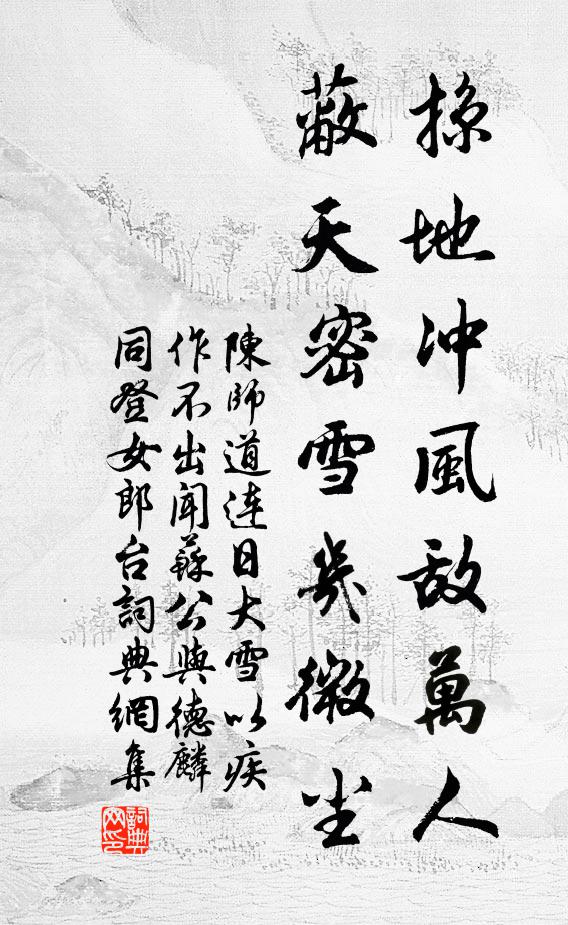 掠地冲風敌萬人
蔽天密雪幾微尘
陳師道连日大雪以疾
作不出闻蘇公與德麟
同登女郎台詞典網集
詞典
网印